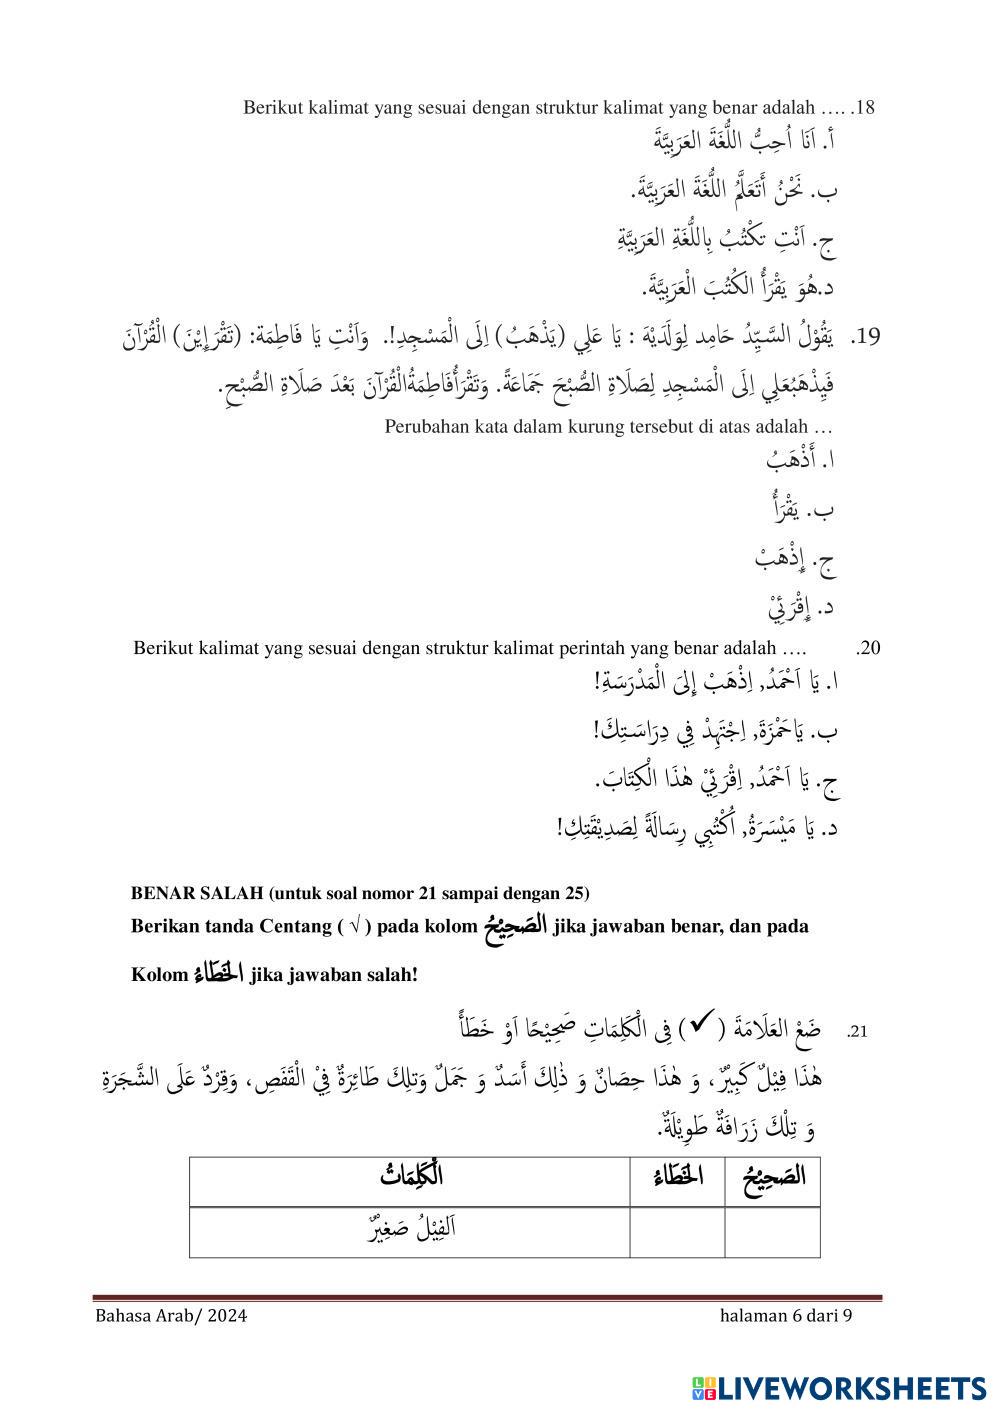 18. Berikut kalimat yang sesuai dengan struktur kalimat yang benar adalah ….
أ. اَنَا اُحِبُّ اللُّغَةَ العَرَبِيَّةَ
ب. نَحْنُ أَتَعَلَّمُ اللُّغَةَ العَرَبِيَّةَ.
ج. اَنْتِ تَكْتُبُ بِاللُّغَةِ العَرَبِيَّةِ
د.هُوَ يَقْرَأُ الكُتُبَ الْعَرَبِيَّةَ.
19. يَقُوْلُ السَّيِّدُ حَامِد لِوَلَدَيْهَ : يَا عَلِي (يَذْهَبُ) اِلَى الْمَسْجِدِ!. وَاَنْتِ يَا فَاطِمَة: (تَقْرَإِيْنَ) الْقُرْآنَ
فَيِذْهَبُعَلِي اِلَى الْمَسْجِدِ لِصَلَاةِ الصُّبْحَ جَمَاعَةً. وَتَقْرَأُفَاطِمَةُالْقُرْآنَ بَعْدَ صَلَاةِ الصُّبْحِ.
Perubahan kata dalam kurung tersebut di atas adalah …
ا. أَذْهَبُ
ب. يَقْرَأُ
ج. إِذْهَبْ
د. إِقْرَئِيْ
20. Berikut kalimat yang sesuai dengan struktur kalimat perintah yang benar adalah ….
ا. يَا اَحْمَدُ, اِذْهَبْ إِلىَ الْمَدْرَسَةِ!
ب. يَاحَمْزَةَ, اِجْتَهِدْ فِي دِرَاسَتِكَ!
ج. يَا اَحْمَدُ, اِقْرَئِيْ هٰذَا الْكِتَابَ.
د. يَا مَيْسَرَةُ, اُكْتُبِي رِسَالَةً لِصَدِيْقَتِكِ!
BENAR SALAH (untuk soal nomor 21 sampai dengan 25)
Berikan tanda Centang ( √ ) pada kolom الصَحِيْحُ jika jawaban benar, dan pada
Kolom الخَطَاءُ jika jawaban salah!
21. ضَعْ العَلَامَةَ (✓) فِى الْكَلِمَاتِ صَحِيْحًا اَوْ خَطَأً
هٰذَا فِيْلٌ كَبِيْرٌ، وَ هٰذَا حِصَانٌ وَ ذٰلِكَ أَسَدٌ وَ جَمَلٌ وَتلِكَ طَائِرَةٌ فِيْ الْقَفَصِ، وَقِرْدٌ عَلَى الشَّجَرَةِ
وَ تِلْكَ زَرَافَةٌ طَوِيْلَةٌ.
الصَحِيْحُ الخَطَاءُ الْكَلِمَاتُ
اَلفِيْلُ صَغِيْرٌ
Bahasa Arab/ 2024 halaman 6 dari 9
LIVEWORKSHEETS